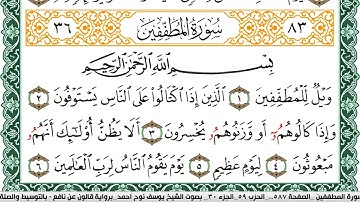 ٨٣ سُورَةُ المُطَفِّفِينَ ٣٦
بِسْمِ اللَّهِ الرَّحْمَٰنِ الرَّحِيمِ
وَيْلٌ لِلْمُطَفِّفِينَ ١ الَّذِينَ إِذَا اكْتَالُوا عَلَى النَّاسِ يَسْتَوْفُونَ ٢
وَإِذَا كَالُوهُمُ أَو وَّزَنُوهُمُ يُخْسِرُونَ ٣ أَلَا يَظُنُّ أُوْلَٰٓئِكَ أَنَّهُمُ
مَبْعُوثُونَ ٤ لِيَوْمٍ عَظِيمٍ ٥ يَوْمَ يَقُومُ النَّاسُ لِرَبِّ الْعَالَمِينَ ٦
سورة المطففين _ الصفحة ٥٨٧ _ الحزب ٥٩ _ الجزء ٣٠ _ بصوت الشيخ يوسف نوح احمد _ برواية قالون عن نافع - بالتوسيط والصلة